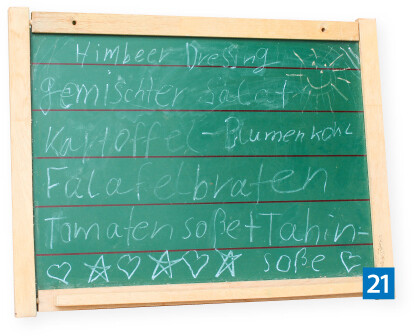 Himbeer Dresing
gemischter Salat
Kartoffel-Blumenkohl
Falafelbraten
Tomatensoße+Tahin-
soße
21